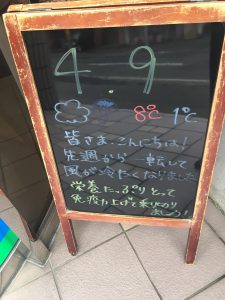 4.9
8℃ 1℃
皆さま、こんにちは!
先週から一転して
風が冷たくなりました
栄養たっぷりとって
免疫力上げて乗り切り
ましょう!